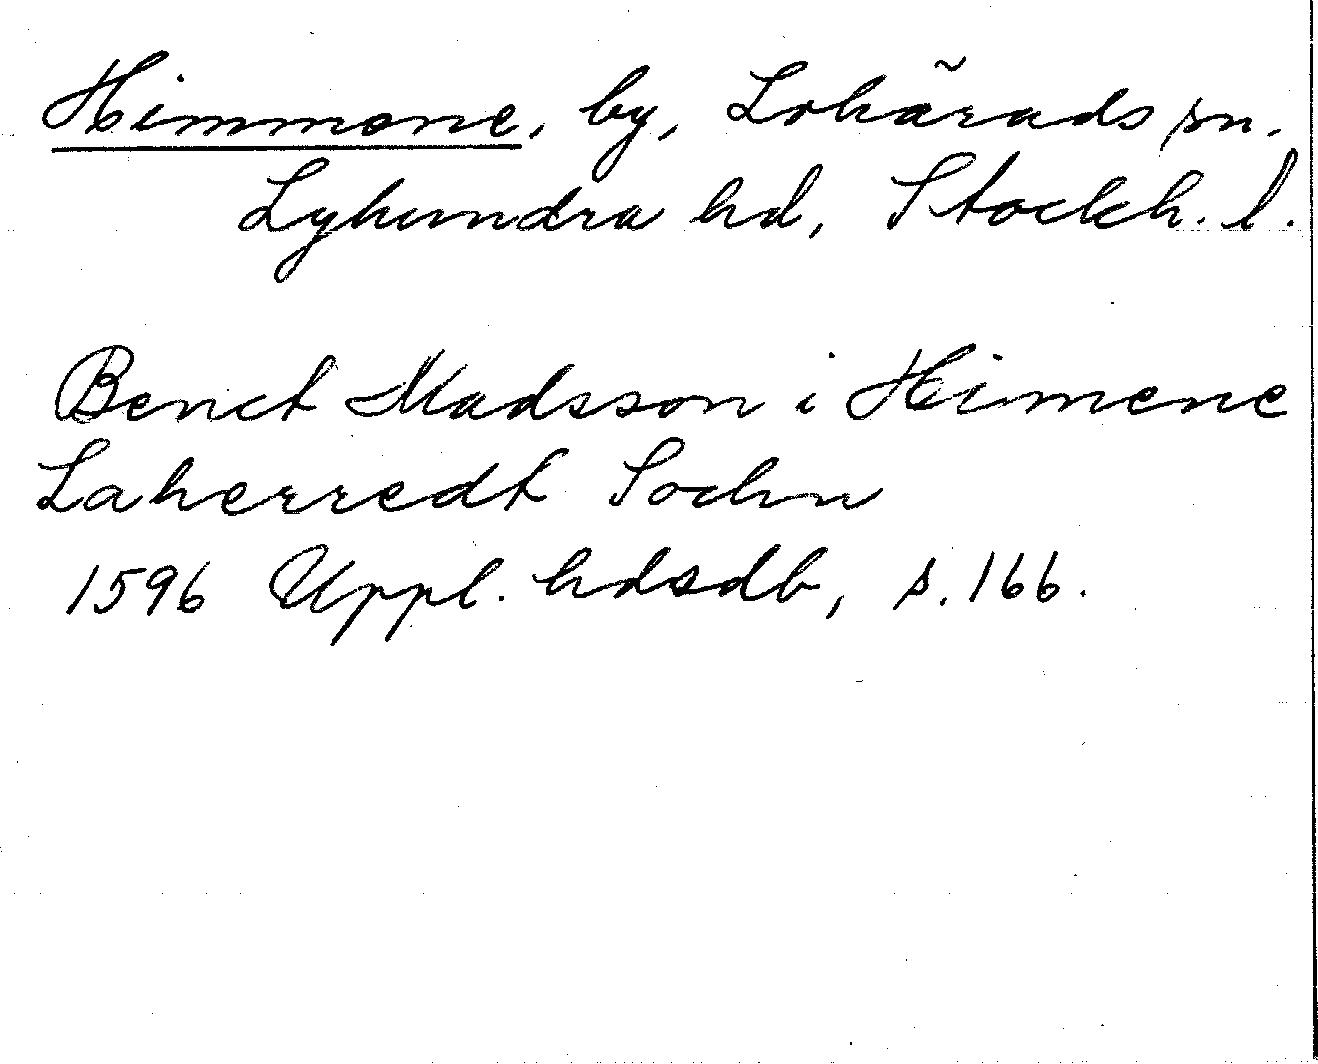 Himmene, by, Lohärads sn.
Lyhundra hd, Stockh. l.
Benct Madsson i Himene
Laherredt Sochn
1596 Uppl. hdsdb, s. 166.